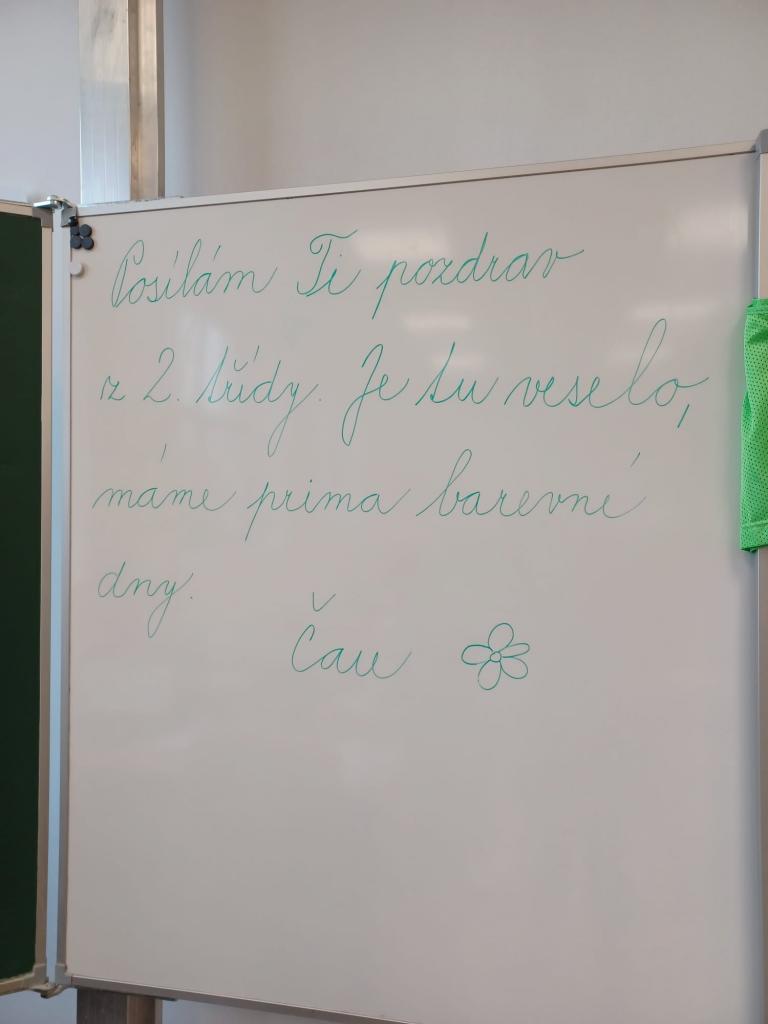 Posílám Ti pozdrav
z 2. třídy. Je tu veselo,
máme prima barevné
dny.
Čau